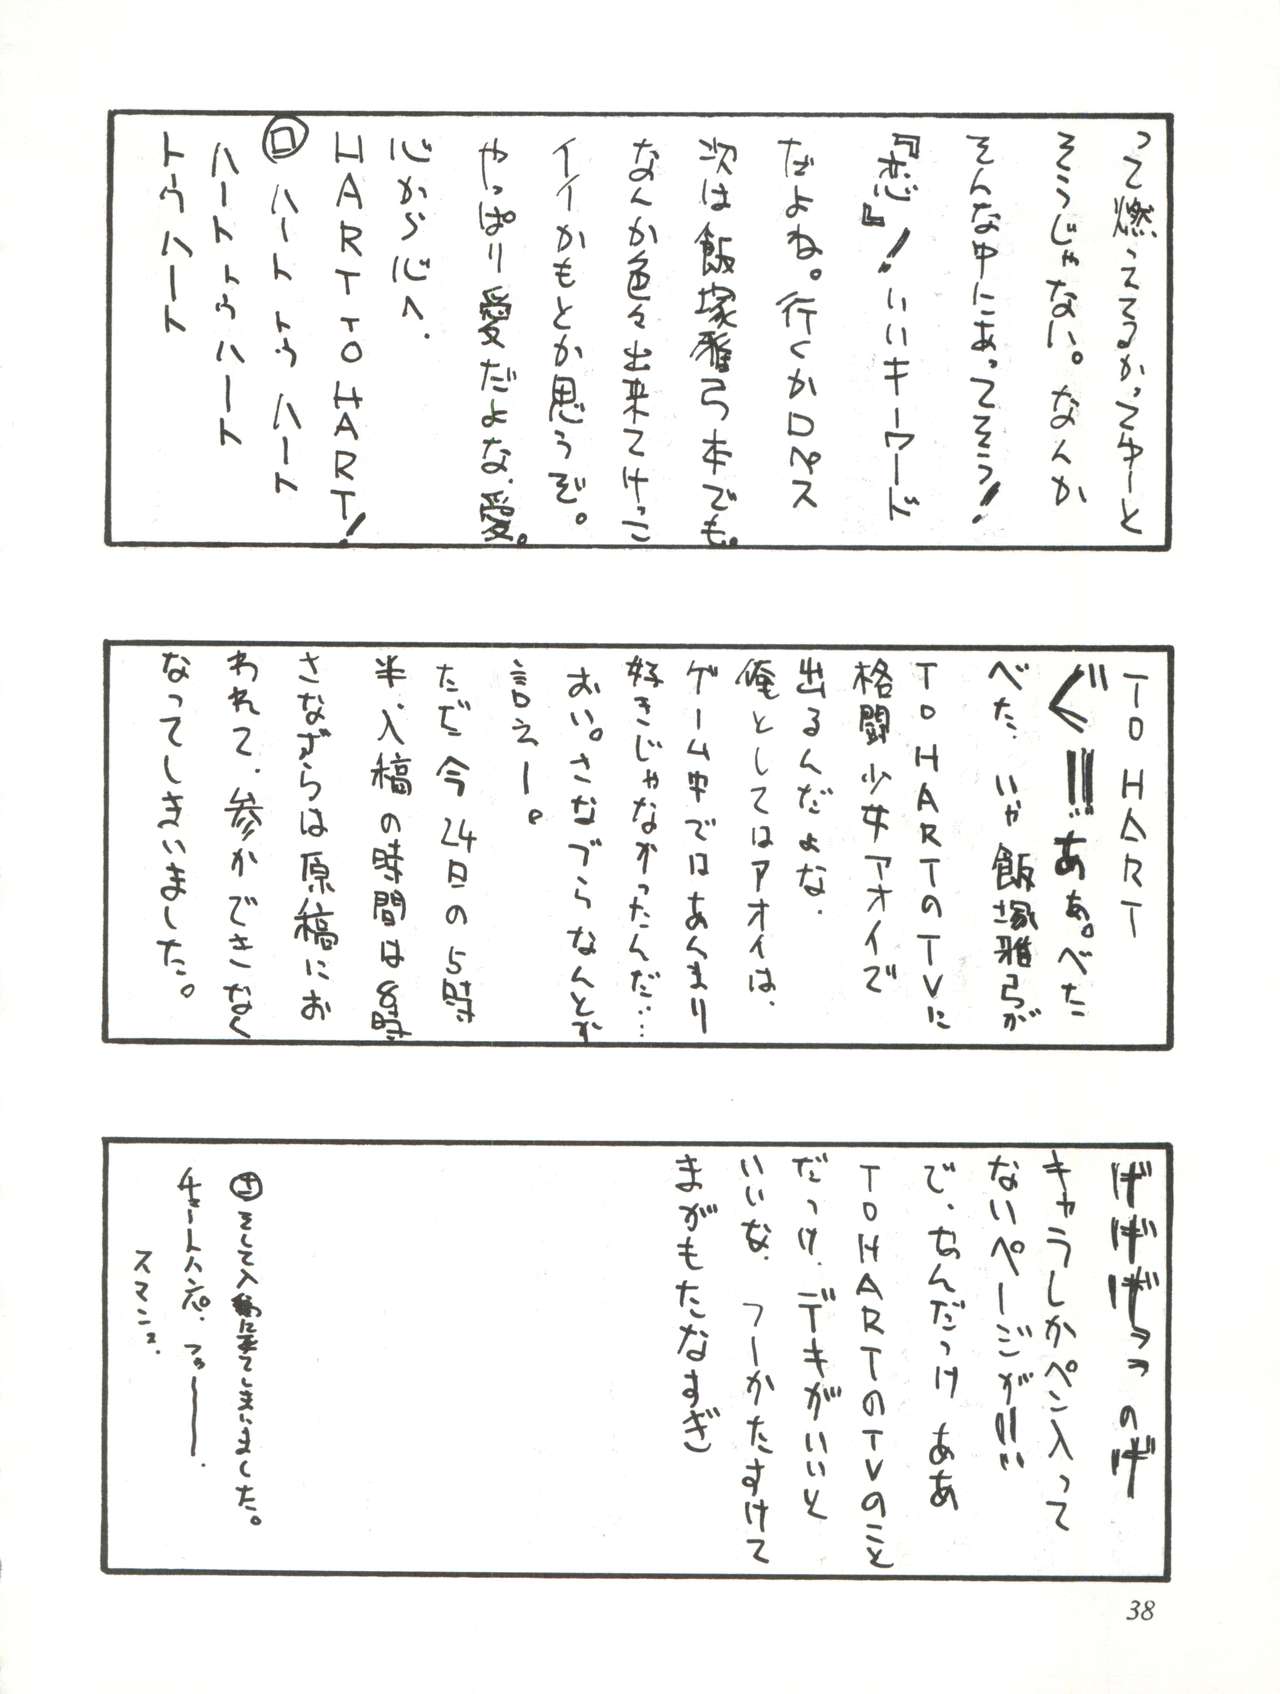 って燃えてるかってゆーと
そうじゃない。なんか
そんな中にあってそう!
『恋』!いいキーワード
だよね。行くかロペス
次は飯塚雅弓本でも。
なんか色々出来てけっこ
イイかもとか思うぞ。
やっぱり愛だよな、愛。
心から心へ.
HART TO HART!
ロ ハートトゥハート
ハートトゥハート
トゥハート
TO HART
ぐ!!!あぁ。べた
べた、いや飯塚雅弓が
TO HARTのTVに
格闘少女アオイで
出るんだよな.
俺としてはアオイは、
ゲーム中ではあんまり
好きじゃなかったんだ…
おい。さなづらなんとか
言えー。
ただ今24日の5時
半、入稿の時間は8時
さなずらは原稿にお
われて、参かできなく
なってしまいました。
げげげっっのげ
キャラしかペン入って
ないページが!!!
で、なんだっけ ああ
TO HARTのTVのこと
だっけ.デキがいいと
いいな. フーかたすけて
まがもたなすぎ
そして入稿に来てしまいました。
スマンヌ.
38